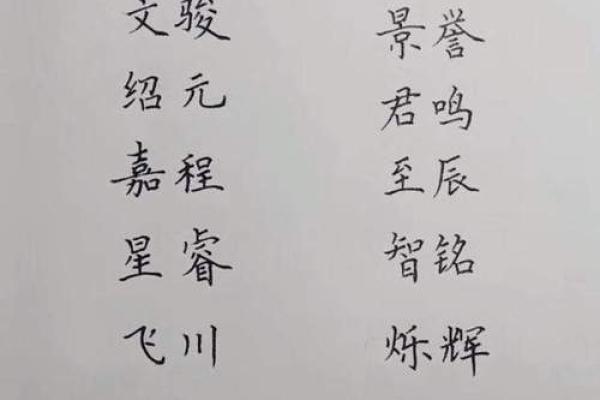 文骏 景誉
绍元 君鸣
嘉程 至辰
星睿 智铭
飞川 烁辉